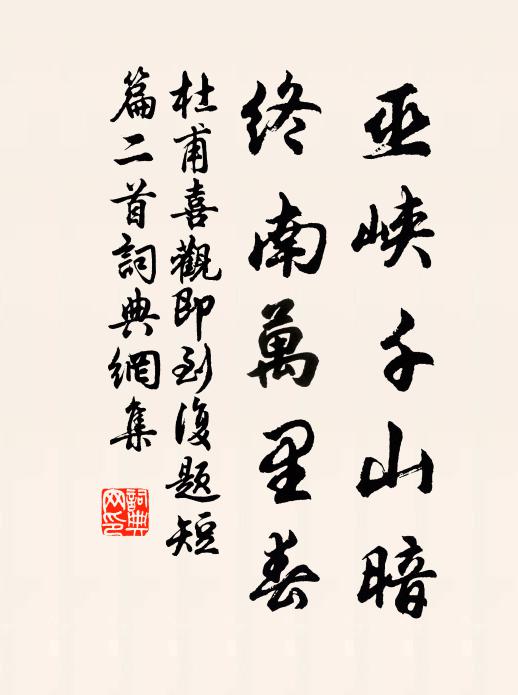 巫峽千山暗
終南萬里春
杜甫喜觀即到復題短
篇二首詞典網集
詞典网印